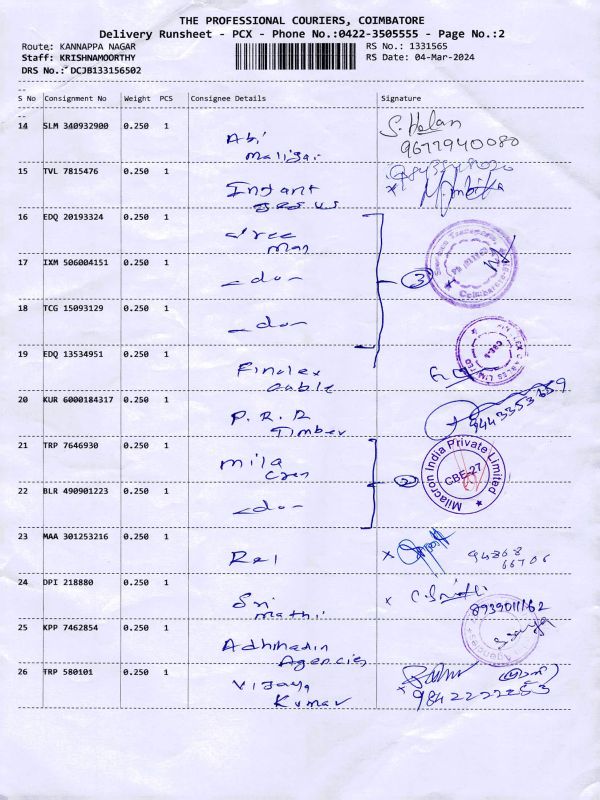 THE PROFESSIONAL COURIERS, COIMBATORE
Delivery Runsheet - PCX - Phone No.:0422-3505555 - Page No.:2
Route: KANNAPPA NAGAR RS No.: 1331565
Staff: KRISHNAMOORTHY RS Date: 04-Mar-2024
DRS No.: DCJB133156502
S No Consignment No Weight PCS Consignee Details Signature
14 SLM 340932900 0.250 1
Abi S. Helan
Maligai 9677940080
15 TVL 7815476 0.250 1
Instant
16 EDQ 20193324 0.250 1
Sree
man
17 IXM 506004151 0.250 1
-do- 3 Coimbatore
18 TCG 15093129 0.250 1
-do-
19 EDQ 13534951 0.250 1
Finolex
Cable CABLES LIMITED
20 KUR 6000184317 0.250 1
P.R.R
Timber 9443353659
21 TRP 7646930 0.250 1
mila
cron 2 Milacron India Private Limited CBE-27
22 BLR 490901223 0.250 1
-do-
23 MAA 301253216 0.250 1
Rel 94868
66706
24 DPI 218880 0.250 1
Sri
mathi 8939011162
25 KPP 7462854 0.250 1
Agencies Agencies
26 TRP 580101 0.250 1
Vijaya
Kumar 9842222253